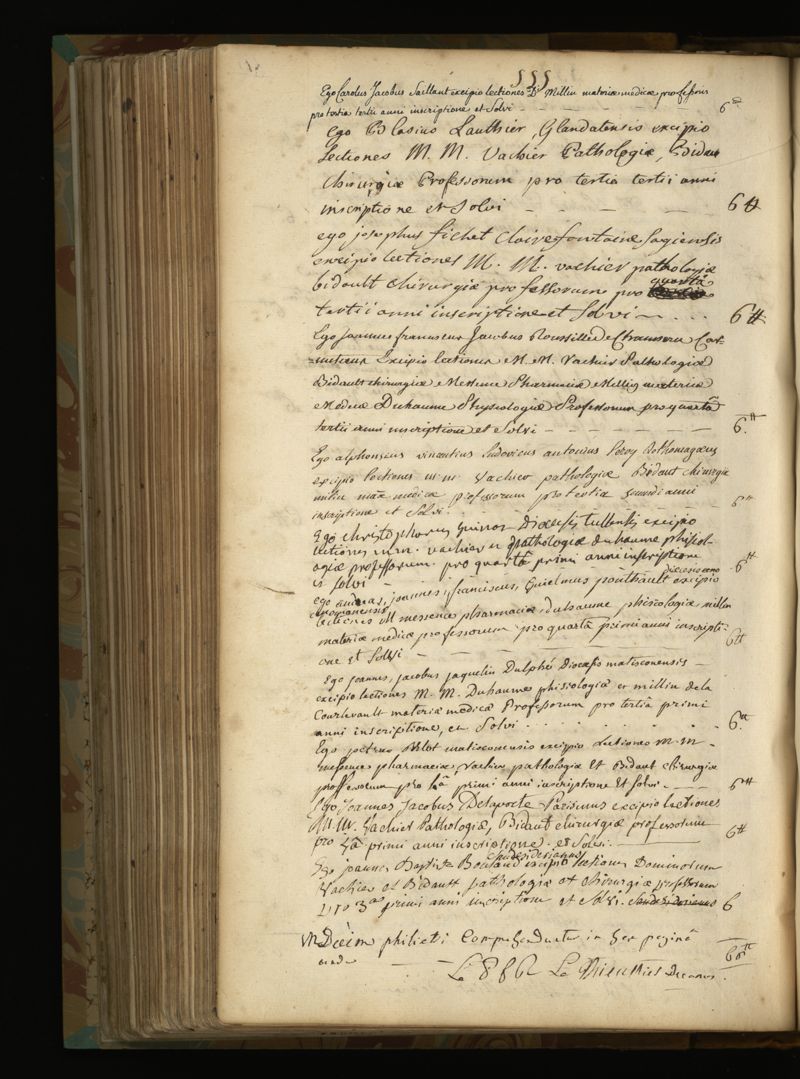 555
Ego Carolus Jacobus Saillant excipio lectiones Dⁱ Millin materiæ medicæ professoris
pro tertia tertii anni inscriptione et Solvi 6
Ego Blasius Lauthier, Glandatensis excipio
Lectiones M. M. Vachier Pathologiæ, Bidault
chirurgiæ Professorum pro tertia tertii anni
inscriptione et Solvi 6 ₶
ego josephus fichet Clairefontaine Sagiensis
excipio lectiones M. M. vachier pathologiæ
bidault chirurgiæ professorum pro quarta
tertii anni inscriptione et Solvi 6 ₶
Ego Joannes franciscus Jacobus Roussille de Chamseru Car-
nutensis Excipio lectiones M. M. Vachier Pathologiæ
Bidault chirurgiæ Messence Pharmaciæ Millin materiæ
Medicæ Duhaume Physiologiæ Professorum pro quartâ
tertii anni inscriptione et Solvi 6 ₶
Ego alphonsius vincentius Ludovicus antonius Leroy Rothomagæus
excipio lectiones m. m. Vachier pathologiæ Bidaut chirurgiæ
millin mæ medicæ professorum pro tertia secundi anni
inscriptione et Solvi 6 ₶
Ego christophorus Dioecesis tullensis excipio
lectiones m.m. vachier pathologiæ duhaume phisiol-
ogiæ professorum. pro quartâ primi anni inscriptione
et solvi 6 ₶
ego andreas, joannes, franciscus, Guielmus pouthault excipio
dioecesis ceno
cenomanensis lectiones M messence pharmaciæ, duhaume phisiologiæ millin
materiæ medicæ professorum pro quartâ primi anni inscripti-
one et Solvi 6 ₶
Ego joannes, jacobus jaquelin Dulphé Dioecesis matisconensis
excipio lectiones M. M. Duhaume phisiologiæ et millin de la
Courvault materiæ medicæ Professorum pro tertiâ primi
anni inscriptione, et Solvi 6 ₶
Ego petrus Blot matisconensis excipio Lectiones M. M
messence pharmaciæ, Vachier pathologiæ Et Bidaut chirurgiæ
professorum pro 4â primi anni inscriptione Et solvi 6 ₶
Ego Joannes Jacobus Delaporte Parisinus excipio lectiones
M. M. Vachier Pathologiæ, Bidaut chirurgiæ professorum
pro 4â primi anni inscriptione et Solvi 6 ₶
Ego joannes Baptista excipio lectiones Dominorum
Vachier et Bidault pathologiæ et chirurgiæ professorum
pro 3â primi anni inscriptione et Solvi. 6
Undecim philiatri Comprehenduntur in hac paginâ
66 ₶
Le Thieullier Decanus.